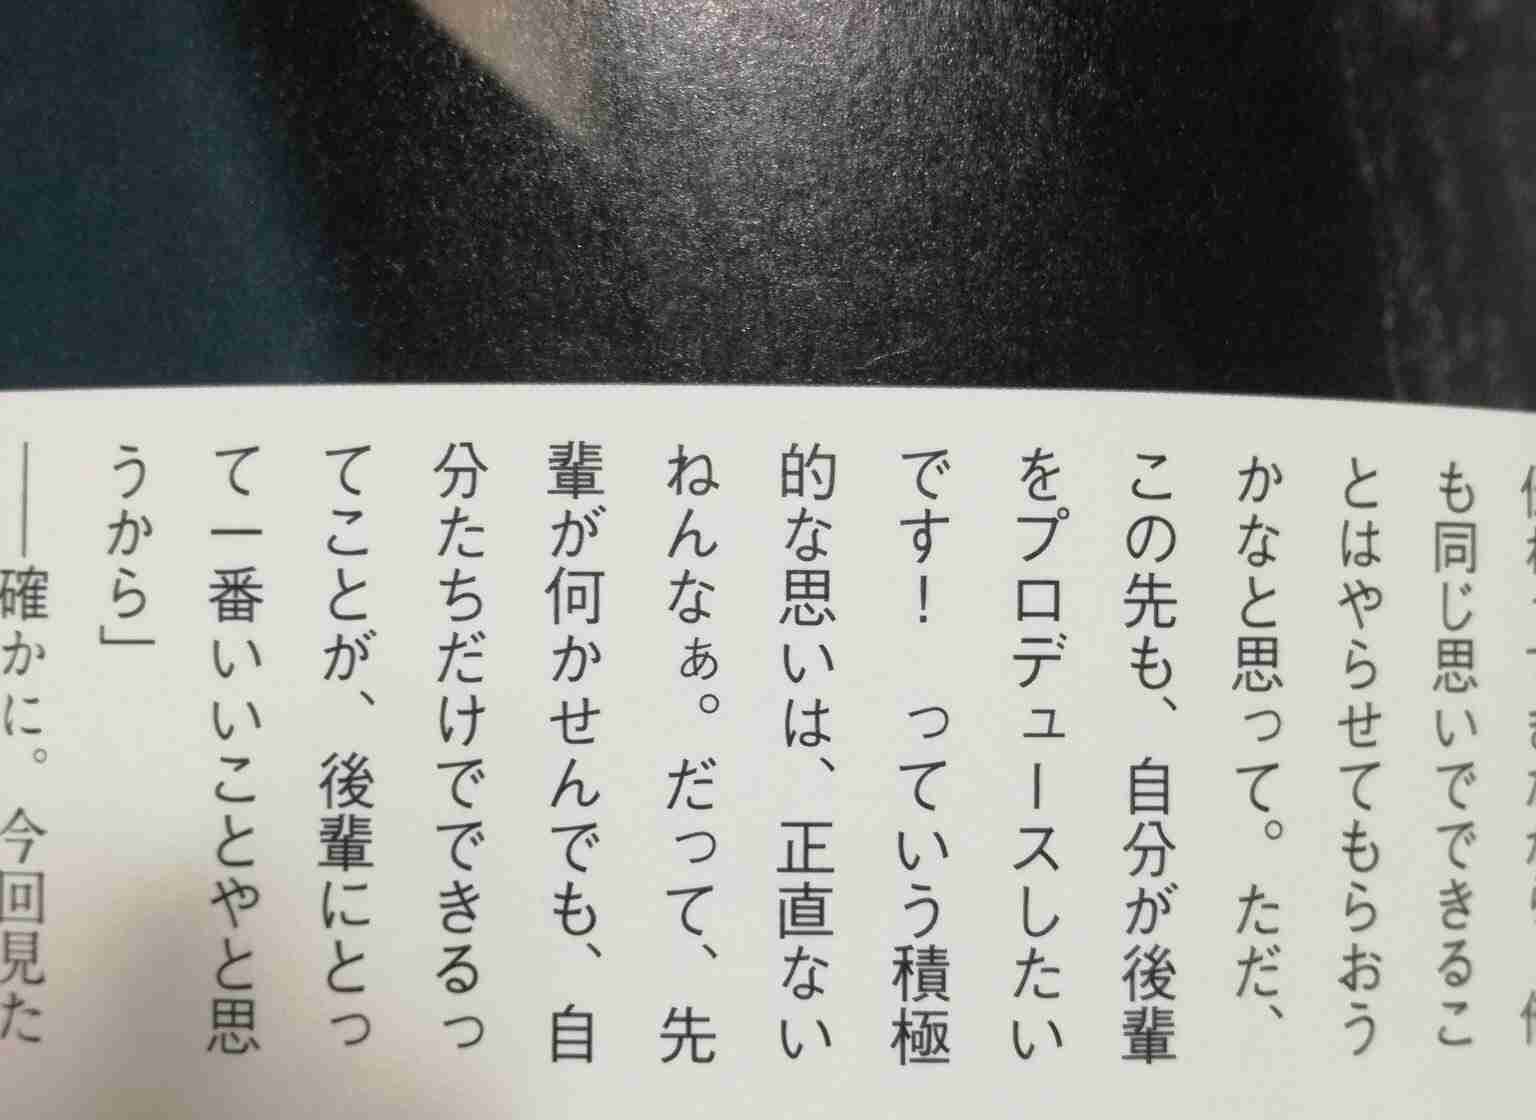 も同じ思いでできるこ
とはやらせてもらおう
かなと思って。ただ、
この先も、自分が後輩
をプロデュースしたい
です！　っていう積極
的な思いは、正直ない
ねんなぁ。だって、先
輩が何かせんでも、自
分たちだけでできるっ
てことが、後輩にとっ
て一番いいことやと思
うから」
──確かに。今回見た